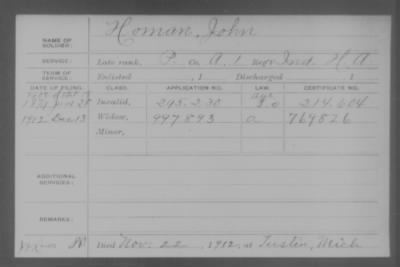 NAME OF SOLDIER: Homan, John
SERVICE: Late rank, P. Co. A, 1 Reg't Ind H A
TERM OF SERVICE: Enlisted , 1 Discharged , 1
DATE OF FILING. CLASS. APPLICATION NO. LAW. CERTIFICATE NO.
Age
Invalid, 295.230 214.604
1912 Dec 13 Widow, 997893 769826
Minor,
ADDITIONAL SERVICES:
REMARKS:
Died Nov. 22, 1912, at Tustin, Mich